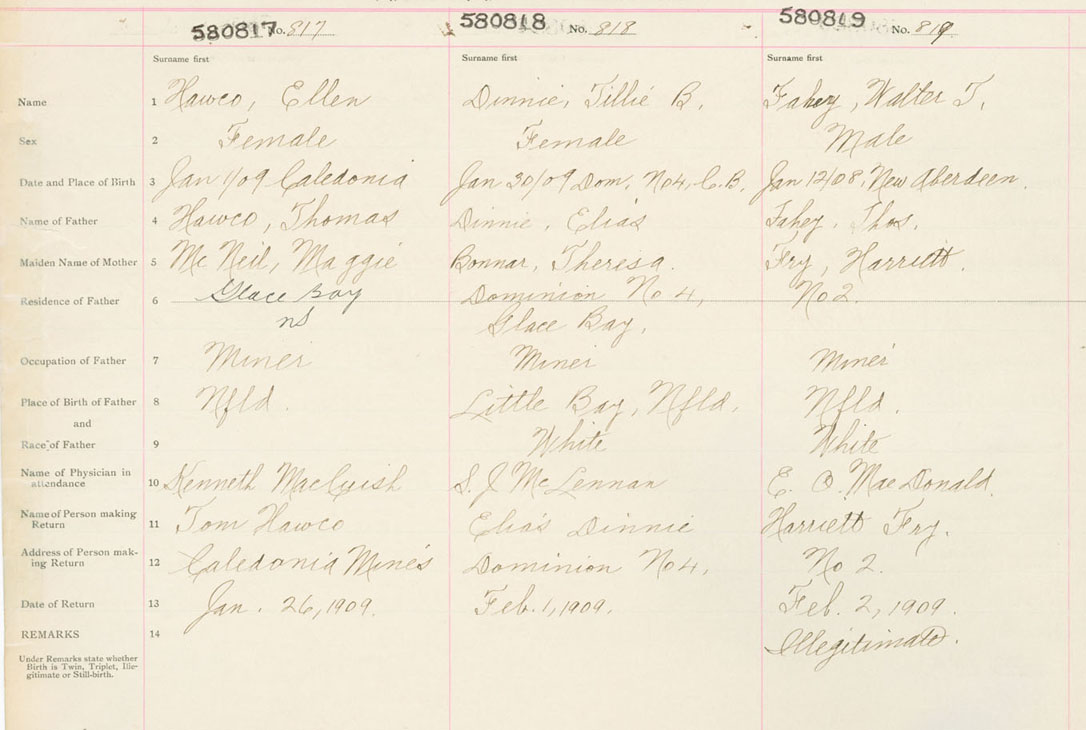 580817 No. 817 580818 No. 818 580819 No. 819
Surname first Surname first Surname first
Name 1 Hawco, Ellen Dinnie, Tillie B. Fahey, Walter T.
Sex 2 Female Female Male
Date and Place of Birth 3 Jan 1/09 Caledonia Jan 30/09 Dom. No 4, C.B. Jan 12/08, New Aberdeen.
Name of Father 4 Hawco, Thomas Dinnie, Elias Fahey, Thos.
Maiden Name of Mother 5 Mc Neil, Maggie Bonnar, Theresa. Fry, Harriett.
Residence of Father 6 Glace Bay Dominion No 4, No 2.
NS Glace Bay,
Occupation of Father 7 Miner Miner Miner
Place of Birth of Father 8 Nfld. Little Bay, Nfld. Nfld.
and
Race of Father 9 White White
Name of Physician in
attendance 10 Kenneth MacCuish S. J McLennan E. O. MacDonald.
Name of Person making
Return 11 Tom Hawco Elias Dinnie Harriett Fry.
Address of Person mak-
ing Return 12 Caledonia Mines Dominion No 4, No 2.
Date of Return 13 Jan. 26, 1909. Feb. 1, 1909. Feb. 2, 1909.
REMARKS 14 Illegitimate.
Under Remarks state whether
Birth is Twin, Triplet, Ille-
gitimate or Still-birth.